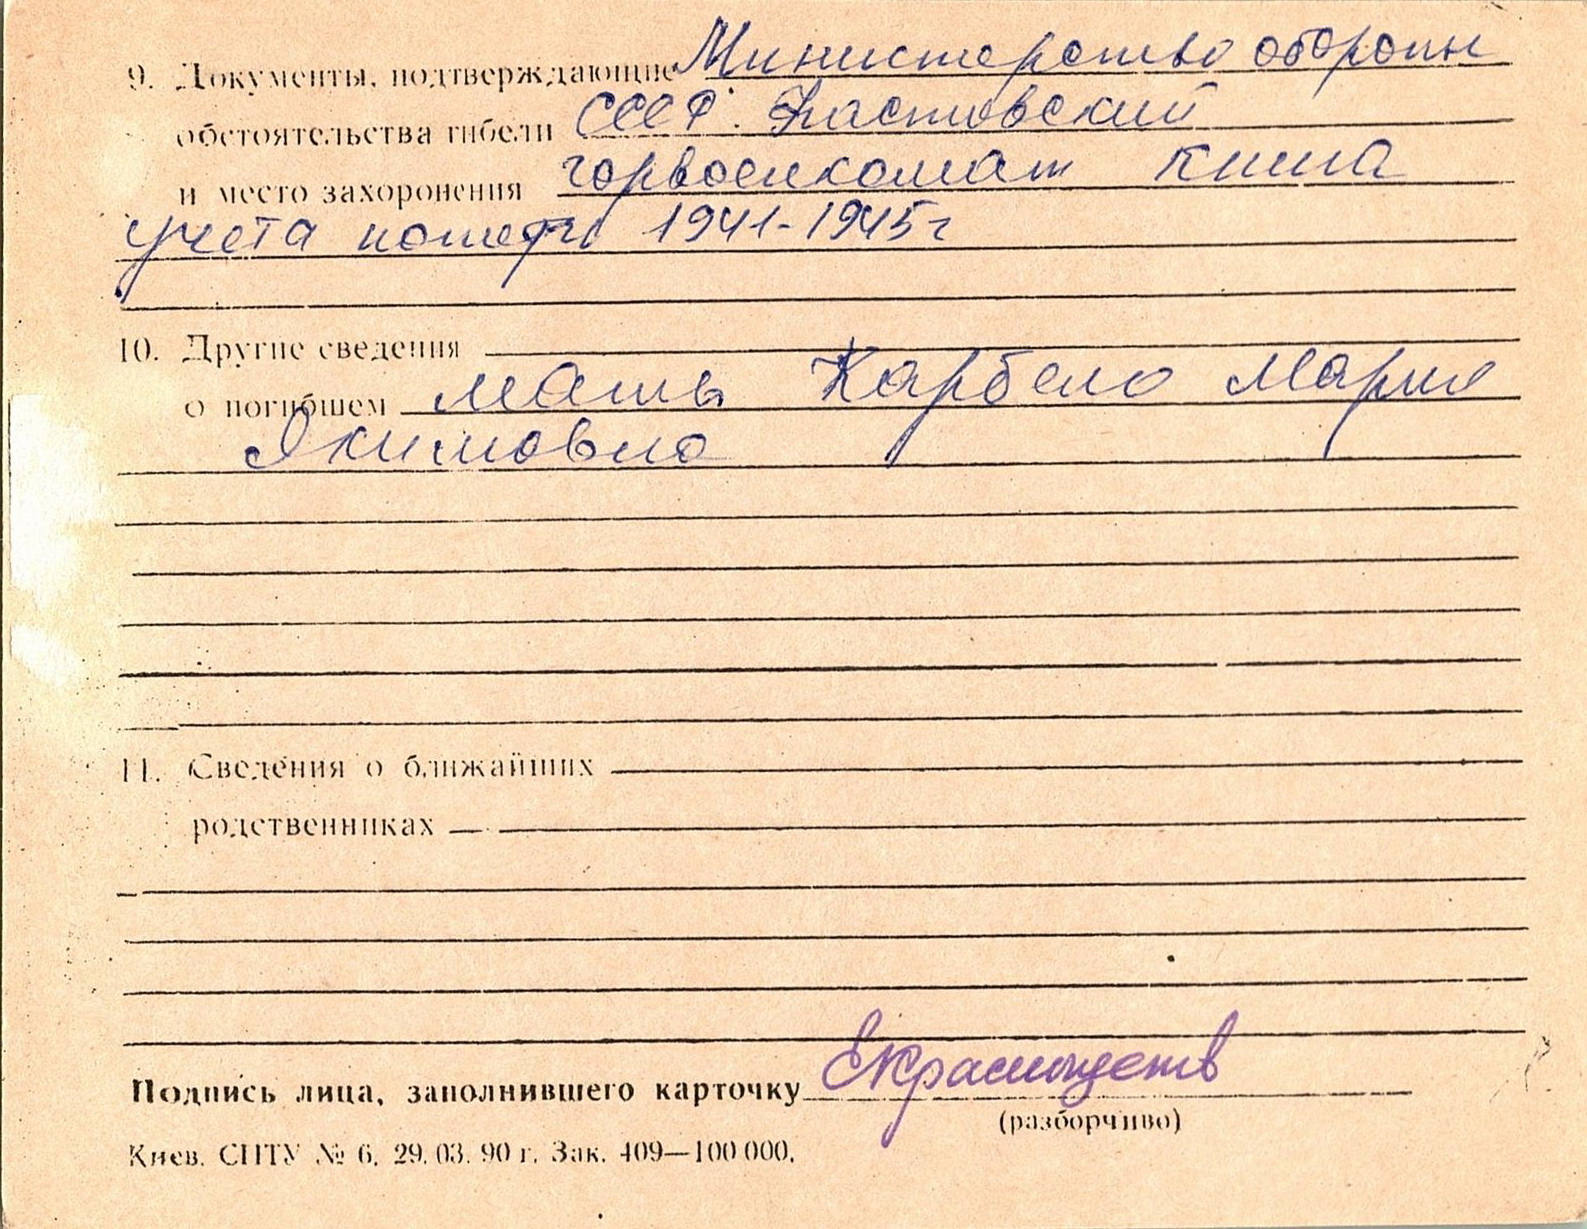 9. Документы, подтверждающие Министерство обороны
обстоятельства гибели СССР. Фастовский
и место захоронения горвоенкомат книга
учета потерь 1941-1945г
10. Другие сведения
о погибшем мать Карбело Мария
Якимовна
11. Сведения о ближайших
родственниках
Подпись лица, заполнившего карточку
(разборчиво)
Киев. СПТУ № 6. 29.03.90 г. Зак. 409—100 000.